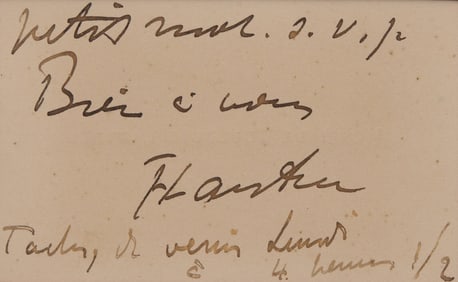 petit mot. s. v. p
Bien à vous
Tachez de venir Lundi
à 4 heures 1/2